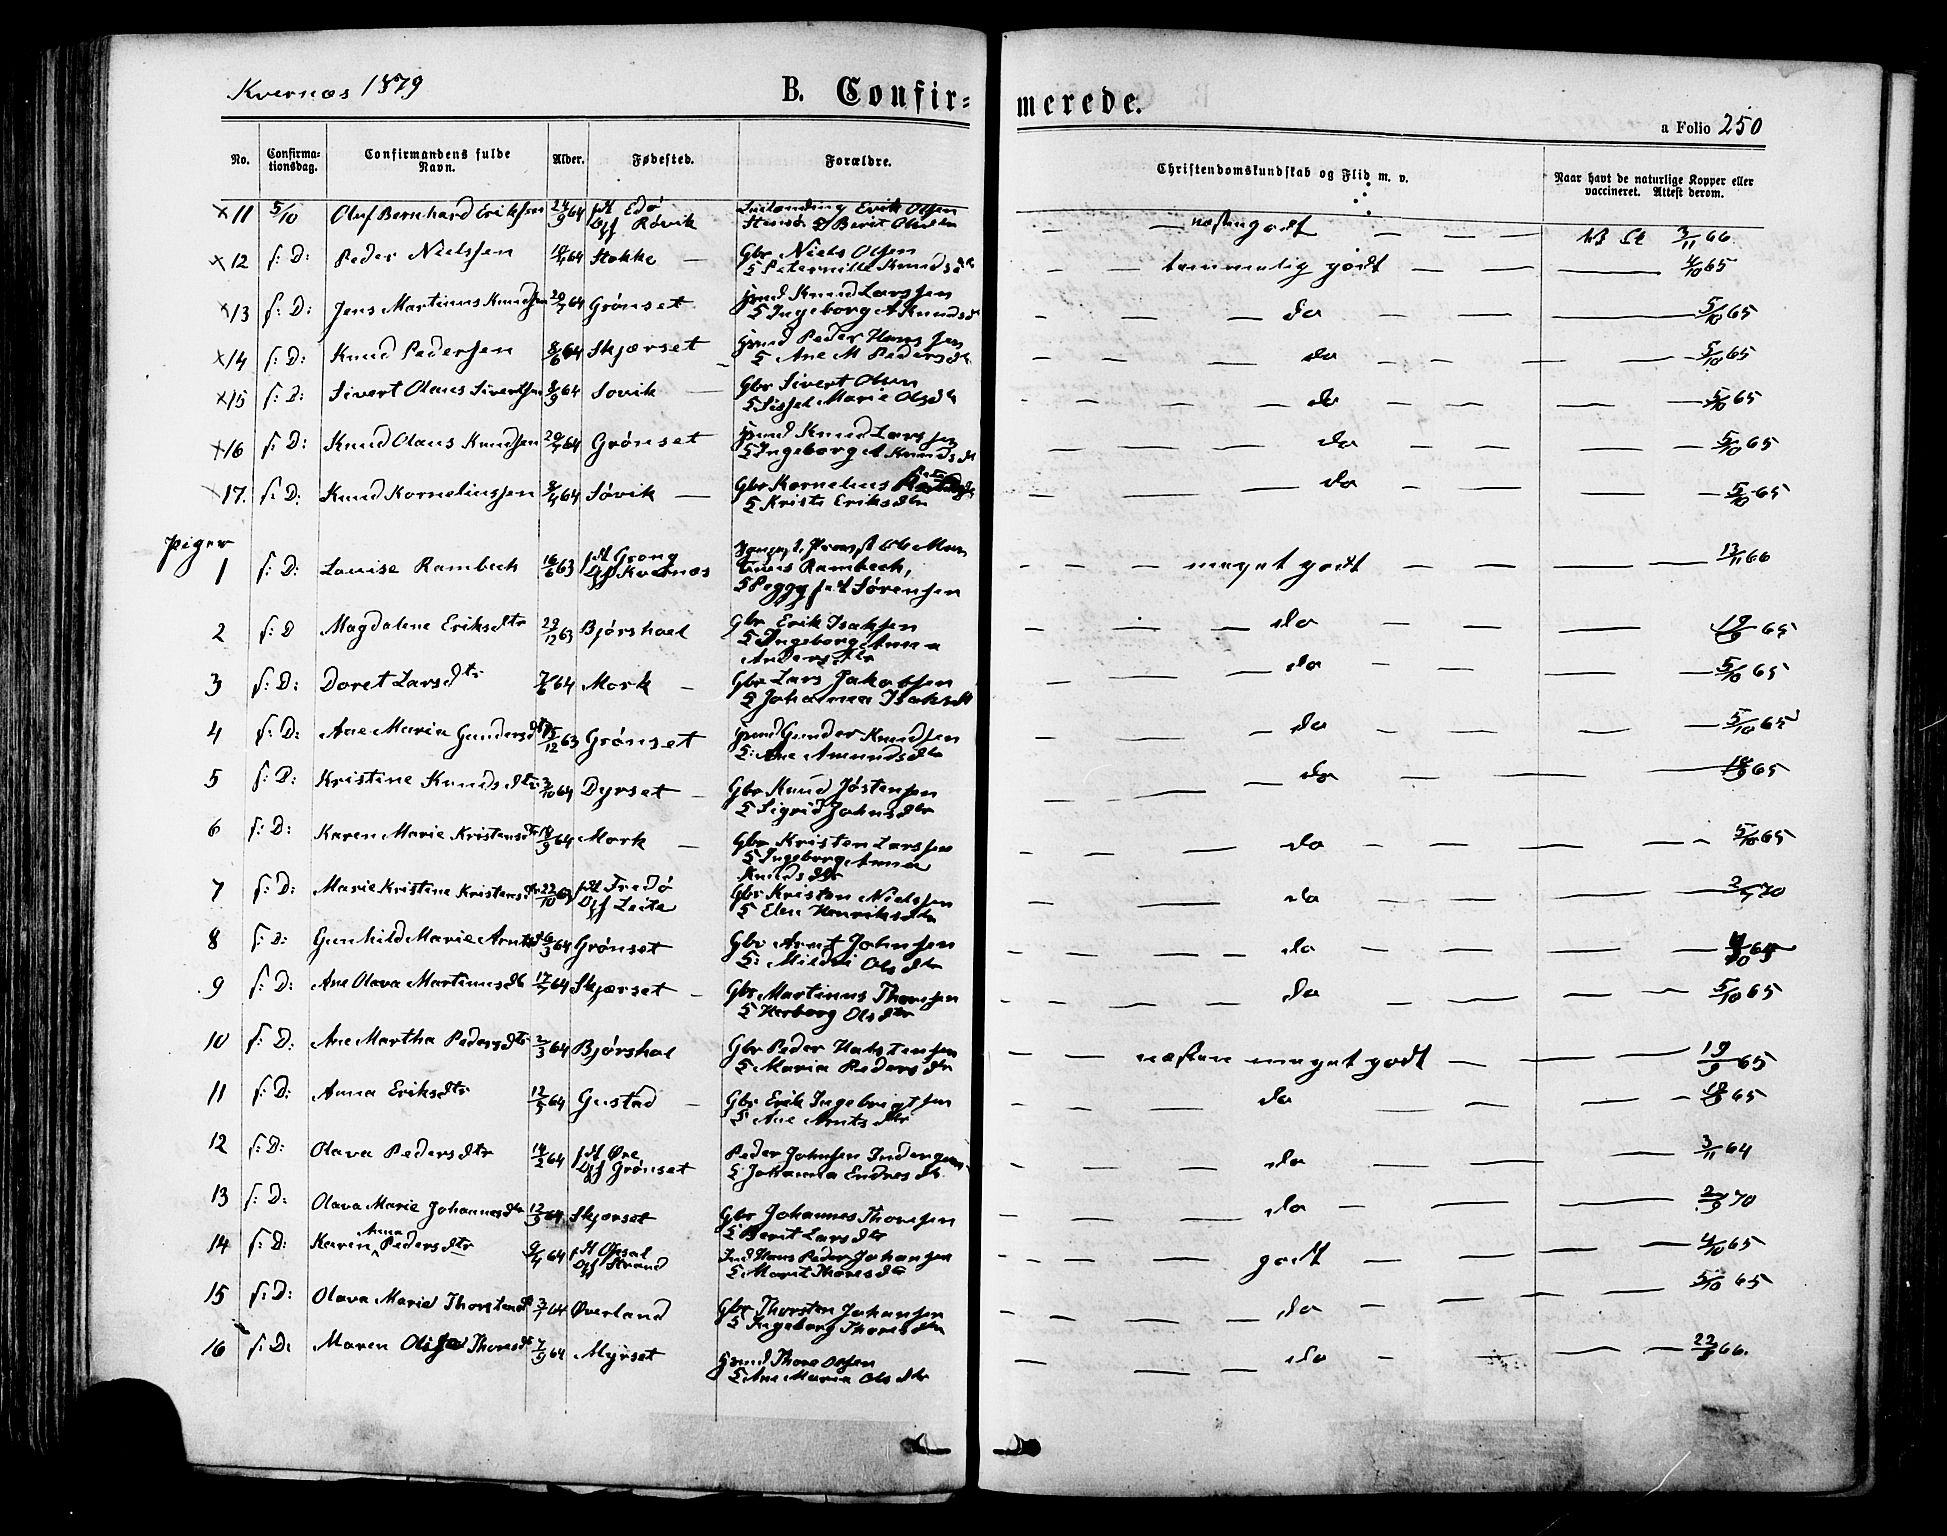 Kvernæs 1879
B. Confirmerede.
a Folio 250
No. Confirmationsdag. Confirmandens fulde Navn. Alder. Fødested. Forældre. Christendomskundskab og Flid m. v. Naar havt de naturlige Kopper eller vaccineret. Attest derom.
x11 5/10 Oluf Bernhard Eriksen 24/9 64 Edø Røvik Erik Olsen
Berit Olsdtr næsten godt 3/11 66
x12 s: D: Peder Nielssen 64 Stokke — Gbr Niels Olsen
& Peternille Knudsd temmelig godt 4/10 65
x13 s: D: Jens Martinus Knudsen 20/7 64 Grønset Knud Larssen
& Ingeborg A Knudsd do 5/10 65
x14 s: D: Knud Pedersen 8/6 64 Skjærset Peder Hanssen
& Ane M Pedersdtr do 5/10 65
x15 s: D: Sivert Olaus Sivertsen 8/9 64 Sovik — Gbr Sivert Olsen
& Sissel Marie Olsdtr do 5/10 65
x16 s: D: Knud Olaus Knudsen 20/7 64 Grønset Knud Larssen
& Ingeborg A Knudsd do 5/10 65
x17. s: D: Knud Kornelinssen 64 Søvik — Gbr Kornelius
& Kristi Eriksdtr do 5/10 65
Piger
1 s: D: Louise Rambech 16/6 63 Grong
Kvernæs Rambech,
& Peggy Sørensen meget godt 13/11 66
2 s: D Magdalene Eriksdtr 29/12 63 Bjørshoel Gbr Erik Isaksen
& Ingeborg Anna
Andersdtr do 19/9 65
3 s: D: Doret Larsdtr 7/6 64 Mork — Gbr Lars Jakobsen
& Johanna Isaksdt do 5/10 65
4 s: D: Ane Maria Gundersdtr 12 63 Grønset Gunder Knudsen
&: Ane Amundsdtr do 5/10 65
5 s: D: Kristine Knudsdtr 3/10 64 Dyrset — Gbr Knud Jøstensen
& Sigrid Johnsdtr do 65
6 s: D: Karen Marie Kristensdtr 9 64 Mork — Gbr Kristen Larssen
& Ingeborg Anna
Knudsdtr do 5/10 65
7 s: D: Marie Kristine Kristensdtr 22/10 63 Fredø
Leite Gbr Kristen Nielssen
& Elen Henriksdtr do 70
8 s: D: Gunhild Marie Arntsd 3 64 Grønset Gbr Arnt Johnsen
&: Mildri Olsdtr do 65
9 s: D: Ane Olava Martinusdt 17/7 64 Skjærset — Gbr Martinus Thoresen
& Herborg Olsdtr do 5/10 65
10 s: D: Ane Martha Pedersdtr 2/3 64 Bjørshol Gbr Peder Halstensen
& Maria Pedersdtr næsten meget godt 19/9 65
11 s: D: Anna Eriksdtr 12/5 64 Gustad — Gbr Erik Ingebrigtsen
& Ane Arntsdtr do 65
12 s: D: Olava Pedersdtr 14/2 64 Øre
Grønset Peder Johnsen
& Johanna Endresdt do 3/11 64
13 s: D: Olava Marie Johannesdtr 64 Skjærset Gbr Johannes Thoresen
& Berit Larsdtr do 2/9 70
14 s: D: Karen Anna Pedersdtr 9/4 64 Opsal
Strand Ind Hans Peder Johansen
& Marit Thoresdtr godt 4/10 65
15 s: D: Olava Marie Thorstensd 64 Øverland Gbr Thorsten Johansen
& Ingeborg Thoresdtr do 5/10 65
16 s: D: Maren Thoresdt 7/9 64 Myrset Thore Olsen
& Ane Maria Olsdtr do 22/8 66.